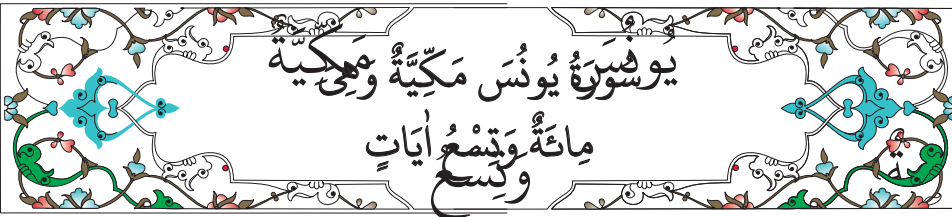 سُورَةُ يُونُسَ مَكِّيَّةٌ وَهِيَ
مِائَةٌ وَتِسْعُ اٰيَاتٍ